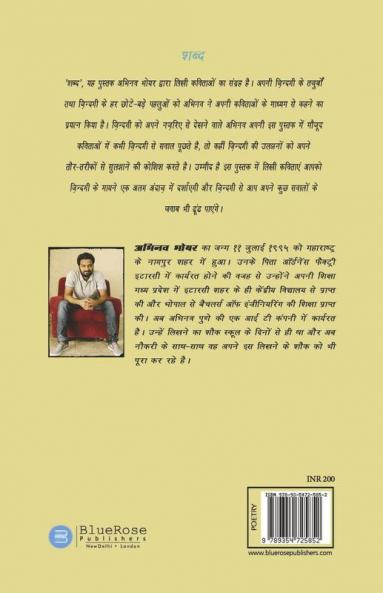 शब्द
'शब्द', यह पुस्तक अभिनव भोयर द्वारा लिखी कविताओं का संग्रह है। अपनी ज़िन्दगी के तजुर्बों
तथा ज़िन्दगी के हर छोटे-बड़े पहलुओं को अभिनव ने अपनी कविताओं के माध्यम से कहने का
प्रयत्न किया है। ज़िन्दगी को अपने नज़रिए से देखने वाले अभिनव अपनी इस पुस्तक में मौजूद
कविताओं में कभी ज़िन्दगी से सवाल पूछते है, तो कहीं ज़िन्दगी की उलझनों को अपने
तौर-तरीकों से सुलझाने की कोशिश करते है। उम्मीद है इस पुस्तक में लिखी कविताएं आपको
ज़िन्दगी के मायने एक अलग अंदाज़ में दर्शाएगी और ज़िन्दगी से आप अपने कुछ सवालों के
जवाब भी ढूंढ पाएंगे।
अभिनव भोयर का जन्म ११ जुलाई १९९५ को महाराष्ट्र
के नागपुर शहर में हुआ। उनके पिता ऑर्डनेंस फैक्ट्री
इटारसी में कार्यरत होने की वजह से उन्होंने अपनी शिक्षा
मध्य प्रदेश में इटारसी शहर के ही केंद्रीय विद्यालय से प्राप्त
की और भोपाल से बैचलर्स ऑफ इंजीनियरिंग की शिक्षा प्राप्त
की। अब अभिनव पुणे की एक आई टी कंपनी में कार्यरत
है। उन्हें लिखने का शौक स्कूल के दिनों से ही था और अब
नौकरी के साथ-साथ वह अपने इस लिखने के शौक को भी
पूरा कर रहे है।
INR 200
ISBN 978-93-5472-585-2
POETRY
9 789354 725852
www.bluerosepublishers.com
B
BlueRose
Publishers
NewDelhi • London